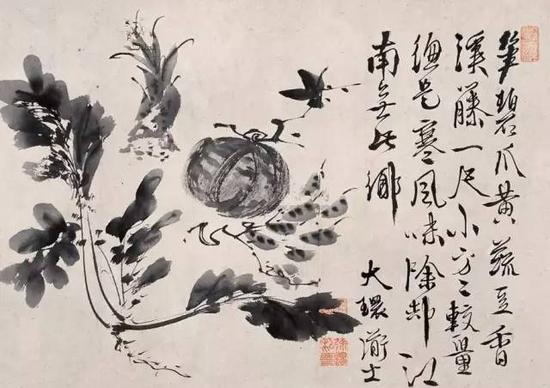 筍碧瓜黃蔬豆香
溪藤一尺小方〻較量
總是寒風味除却江
南無此鄉
大環道士